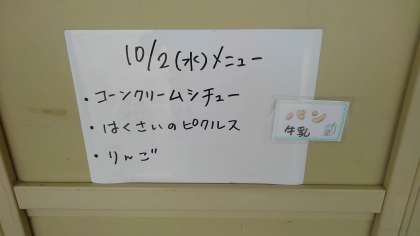 10/2(水)メニュー
・コーンクリームシチュー
・はくさいのピクルス
・りんご
パン
牛乳